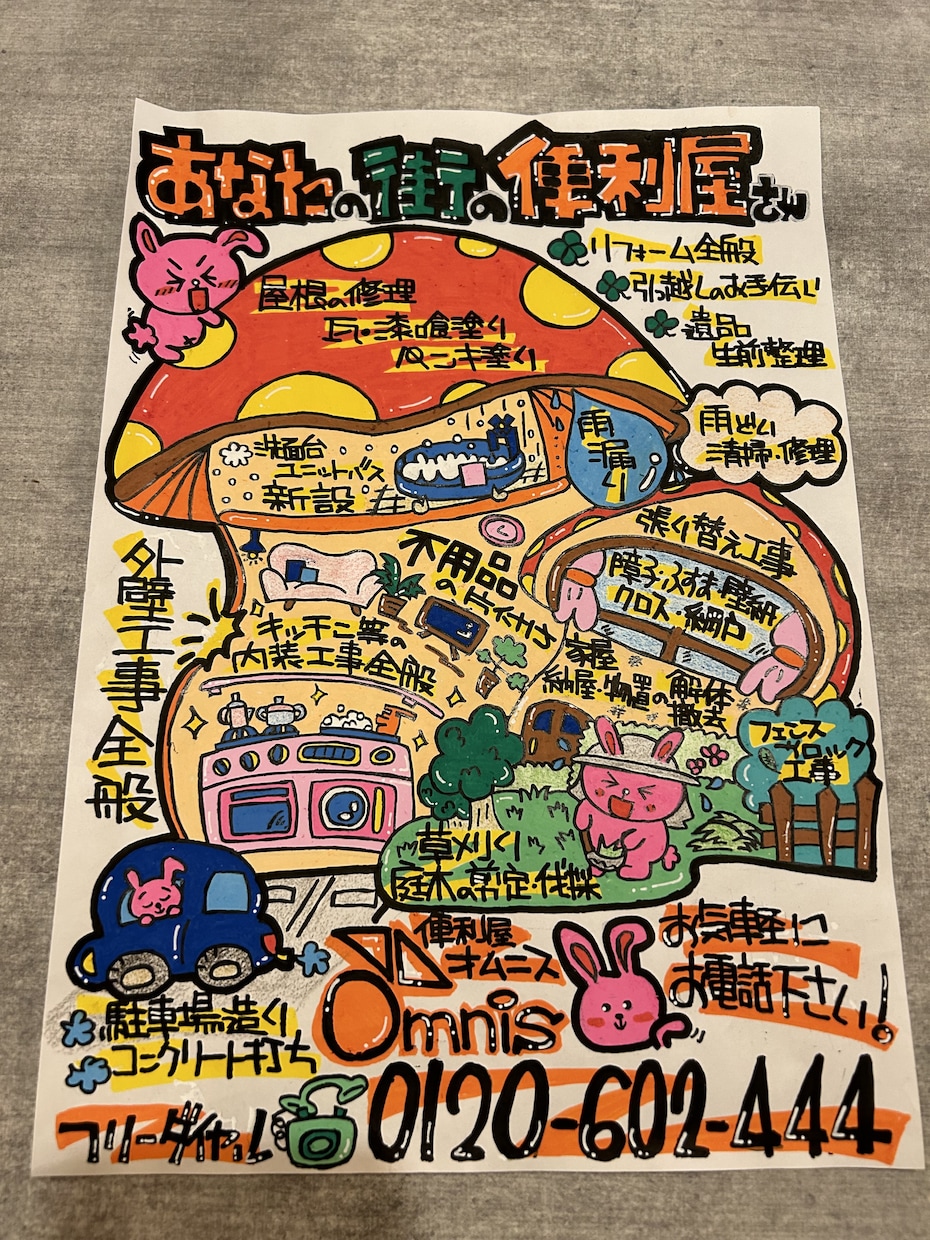 あなたの街の便利屋さん
リフォーム全般
引越しのお手伝い
遺品
生前整理
屋根の修理
瓦・漆喰塗り
ペンキ塗り
雨どい
清掃・修理
雨漏り
洗面台
ユニットバス
新設
張り替え工事
障子・ふすま・壁紙
クロス・網戸
不用品
の片付け
外壁工事全般
キッチン等の
内装工事全般
家屋
納屋・物置の解体
撤去
フェンス
ブロック
工事
草刈り
庭木の剪定・伐採
便利屋
オムニス
Omnis
お気軽に
お電話下さい!
駐車場造り
コンクリート打ち
フリーダイヤル
0120-602-444